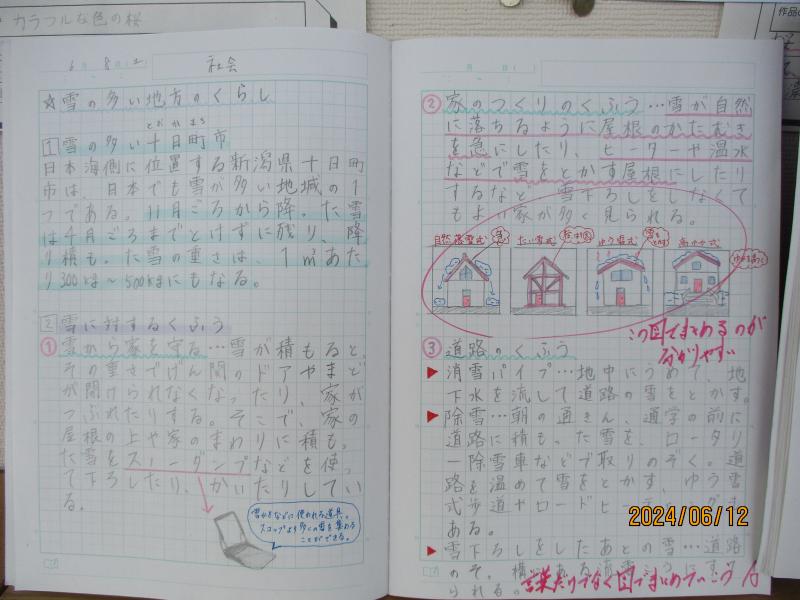 カラフルな色の桜
6月 8日(土)
社会
☆雪の多い地方のくらし
1 雪の多い十日町市
とおかまち
日本海側に位置する新潟県十日町
市は、日本でも雪が多い地域の1
つである。11月ごろから降った雪
は4月ごろまでとけずに残り、降
り積もった雪の重さは、1㎡あた
り300kg〜500kgにもなる。
2 雪に対するくふう
① 雪から家を守る…雪が積もると、
その重さでげん関のドアやまど
が開けられなくなったり、家が
つぶれたりする。そこで、家の
屋根の上や家のまわりに積もっ
た雪をスノーダンプなどを使っ
て下ろしたり、かいたりしてい
る。
雪かきなどに使われる道具。
スコップより多くの雪を集める
ことができる。
② 家のつくりのくふう…雪が自然
に落ちるように屋根のかたむき
を急にしたり、ヒーターや温水
などで雪をとかす屋根にしたり
するなど、雪下ろしをしなくて
もよい家が多く見られる。
自然落雪式
たい雪式
ゆう雪式
高ゆか式
この図でまとめるのが
分かりやすい
③ 道路のくふう
▶ 消雪パイプ…地中にうめて、地
下水を流して道路の雪をとかす。
▶ 除雪…朝の通きん、通学の前に
道路に積もった雪を、ロータリ
ー除雪車などで取りのぞく。道
路を温めて雪をとかす、ゆう雪
式歩道やロードヒーティングも
ある。
▶ 雪下ろしをしたあとの雪…道路
言葉だけでなく図でまとめていこう
2024/06/12